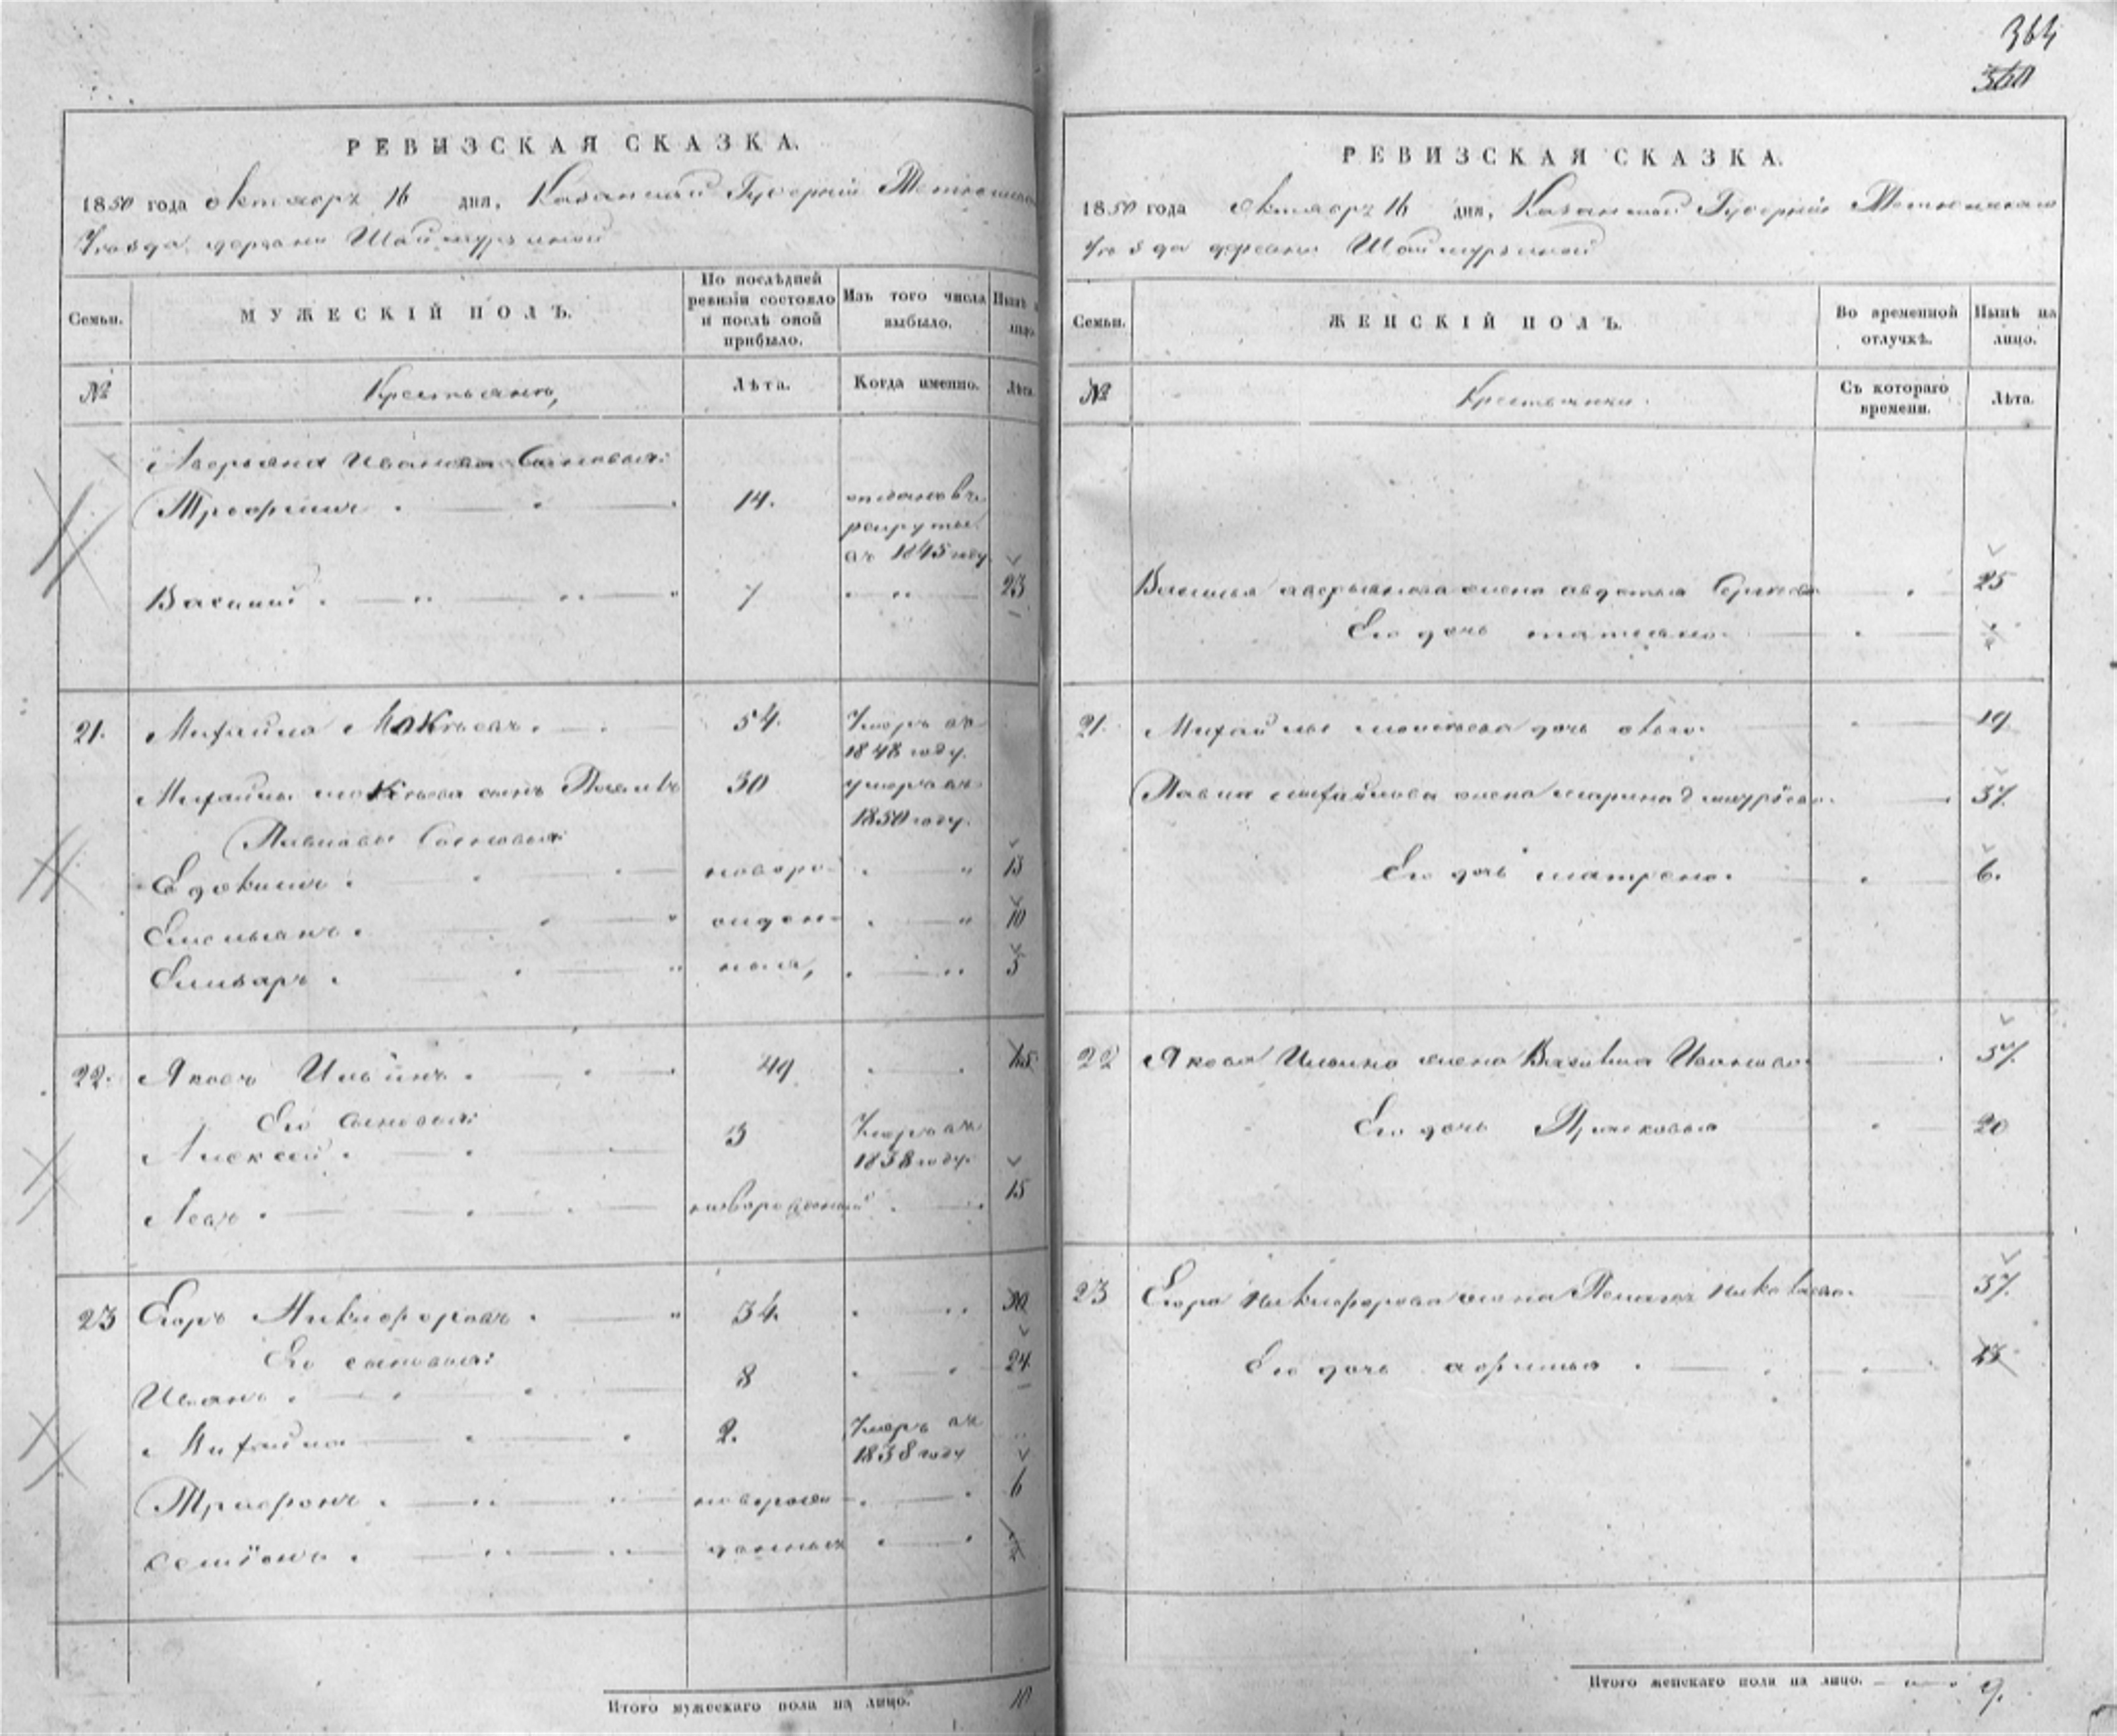 364
360
РЕВИЗСКАЯ СКАЗКА.
1850 года октября 16 дня, Казанской Губерніи Тетюшскаго
Уѣзда деревни Шаймурзиной
Семьи.
МУЖЕСКІЙ ПОЛЪ.
По послѣдней ревизіи состояло и послѣ оной прибыло.
Изъ того числа выбыло.
Нынѣ на лицо.
№
Крестьяне,
Лѣта.
Когда именно.
Лѣта.
Аверьяна Иванова Сыновья:
Трофимъ 14. отданъ въ
рекруты
въ 1845 году
Василий 7 23
21. Михайла Мокѣевъ. 54. Умеръ въ
1848 году.
Михайлы Мокѣева сынъ Павелъ 30 умеръ въ
1850 году.
Павловы Сыновья:
Евдокимъ. новоро- 13
Емельянъ. жден- 10
Елизаръ. ныя, 5
22. Яковъ Ильинъ. 49
Его Сыновья:
Алексей. 3 Умеръ въ
1838 году.
Левъ. новорожденный 15
23 Егоръ Никифоровъ. 34.
Его сыновья:
Иванъ. 8 24
Михайла 2. Умеръ въ
1838 году
Трифонъ. новорож 6
Семіонъ. денныя
Итого мужескаго пола на лицо. 10
РЕВИЗСКАЯ СКАЗКА.
1850 года октября 16 дня, Казанской Губерніи Тетюшскаго
Уѣзда деревни Шаймурзиной
Семьи.
ЖЕНСКІЙ ПОЛЪ.
Во временной отлучкѣ.
Нынѣ на лицо.
№
Крестьянки.
Съ котораго времени.
Лѣта.
Василья Аверьянова жена Авдотья 25
Его дочь татьяна.
21. Михайлы Мокѣева дочь 19
Павла Михайлова жена Марина 37.
Его дочь матрена. 6.
22 Якова Ильина жена Василиса Иванова 57.
Его дочь Прасковья 20
23 Егора Никифорова жена Пелагея Николаева. 37.
Его дочь афимья. 13
Итого женскаго пола на лицо. 9.